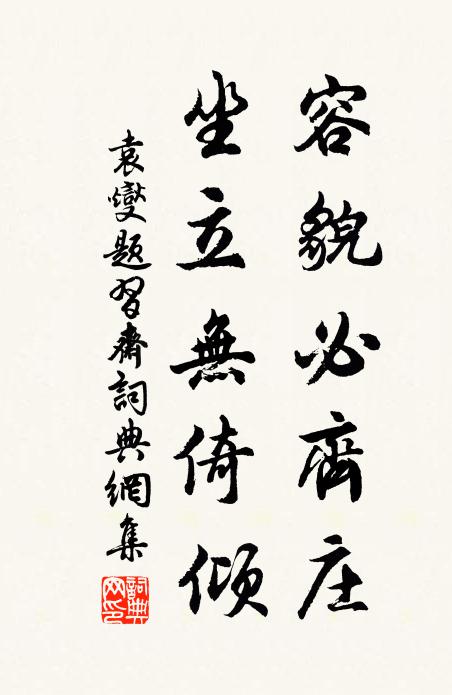 容貌必齊庄
坐立無倚傾
袁燮題習齋詞典網集
詞典
网印